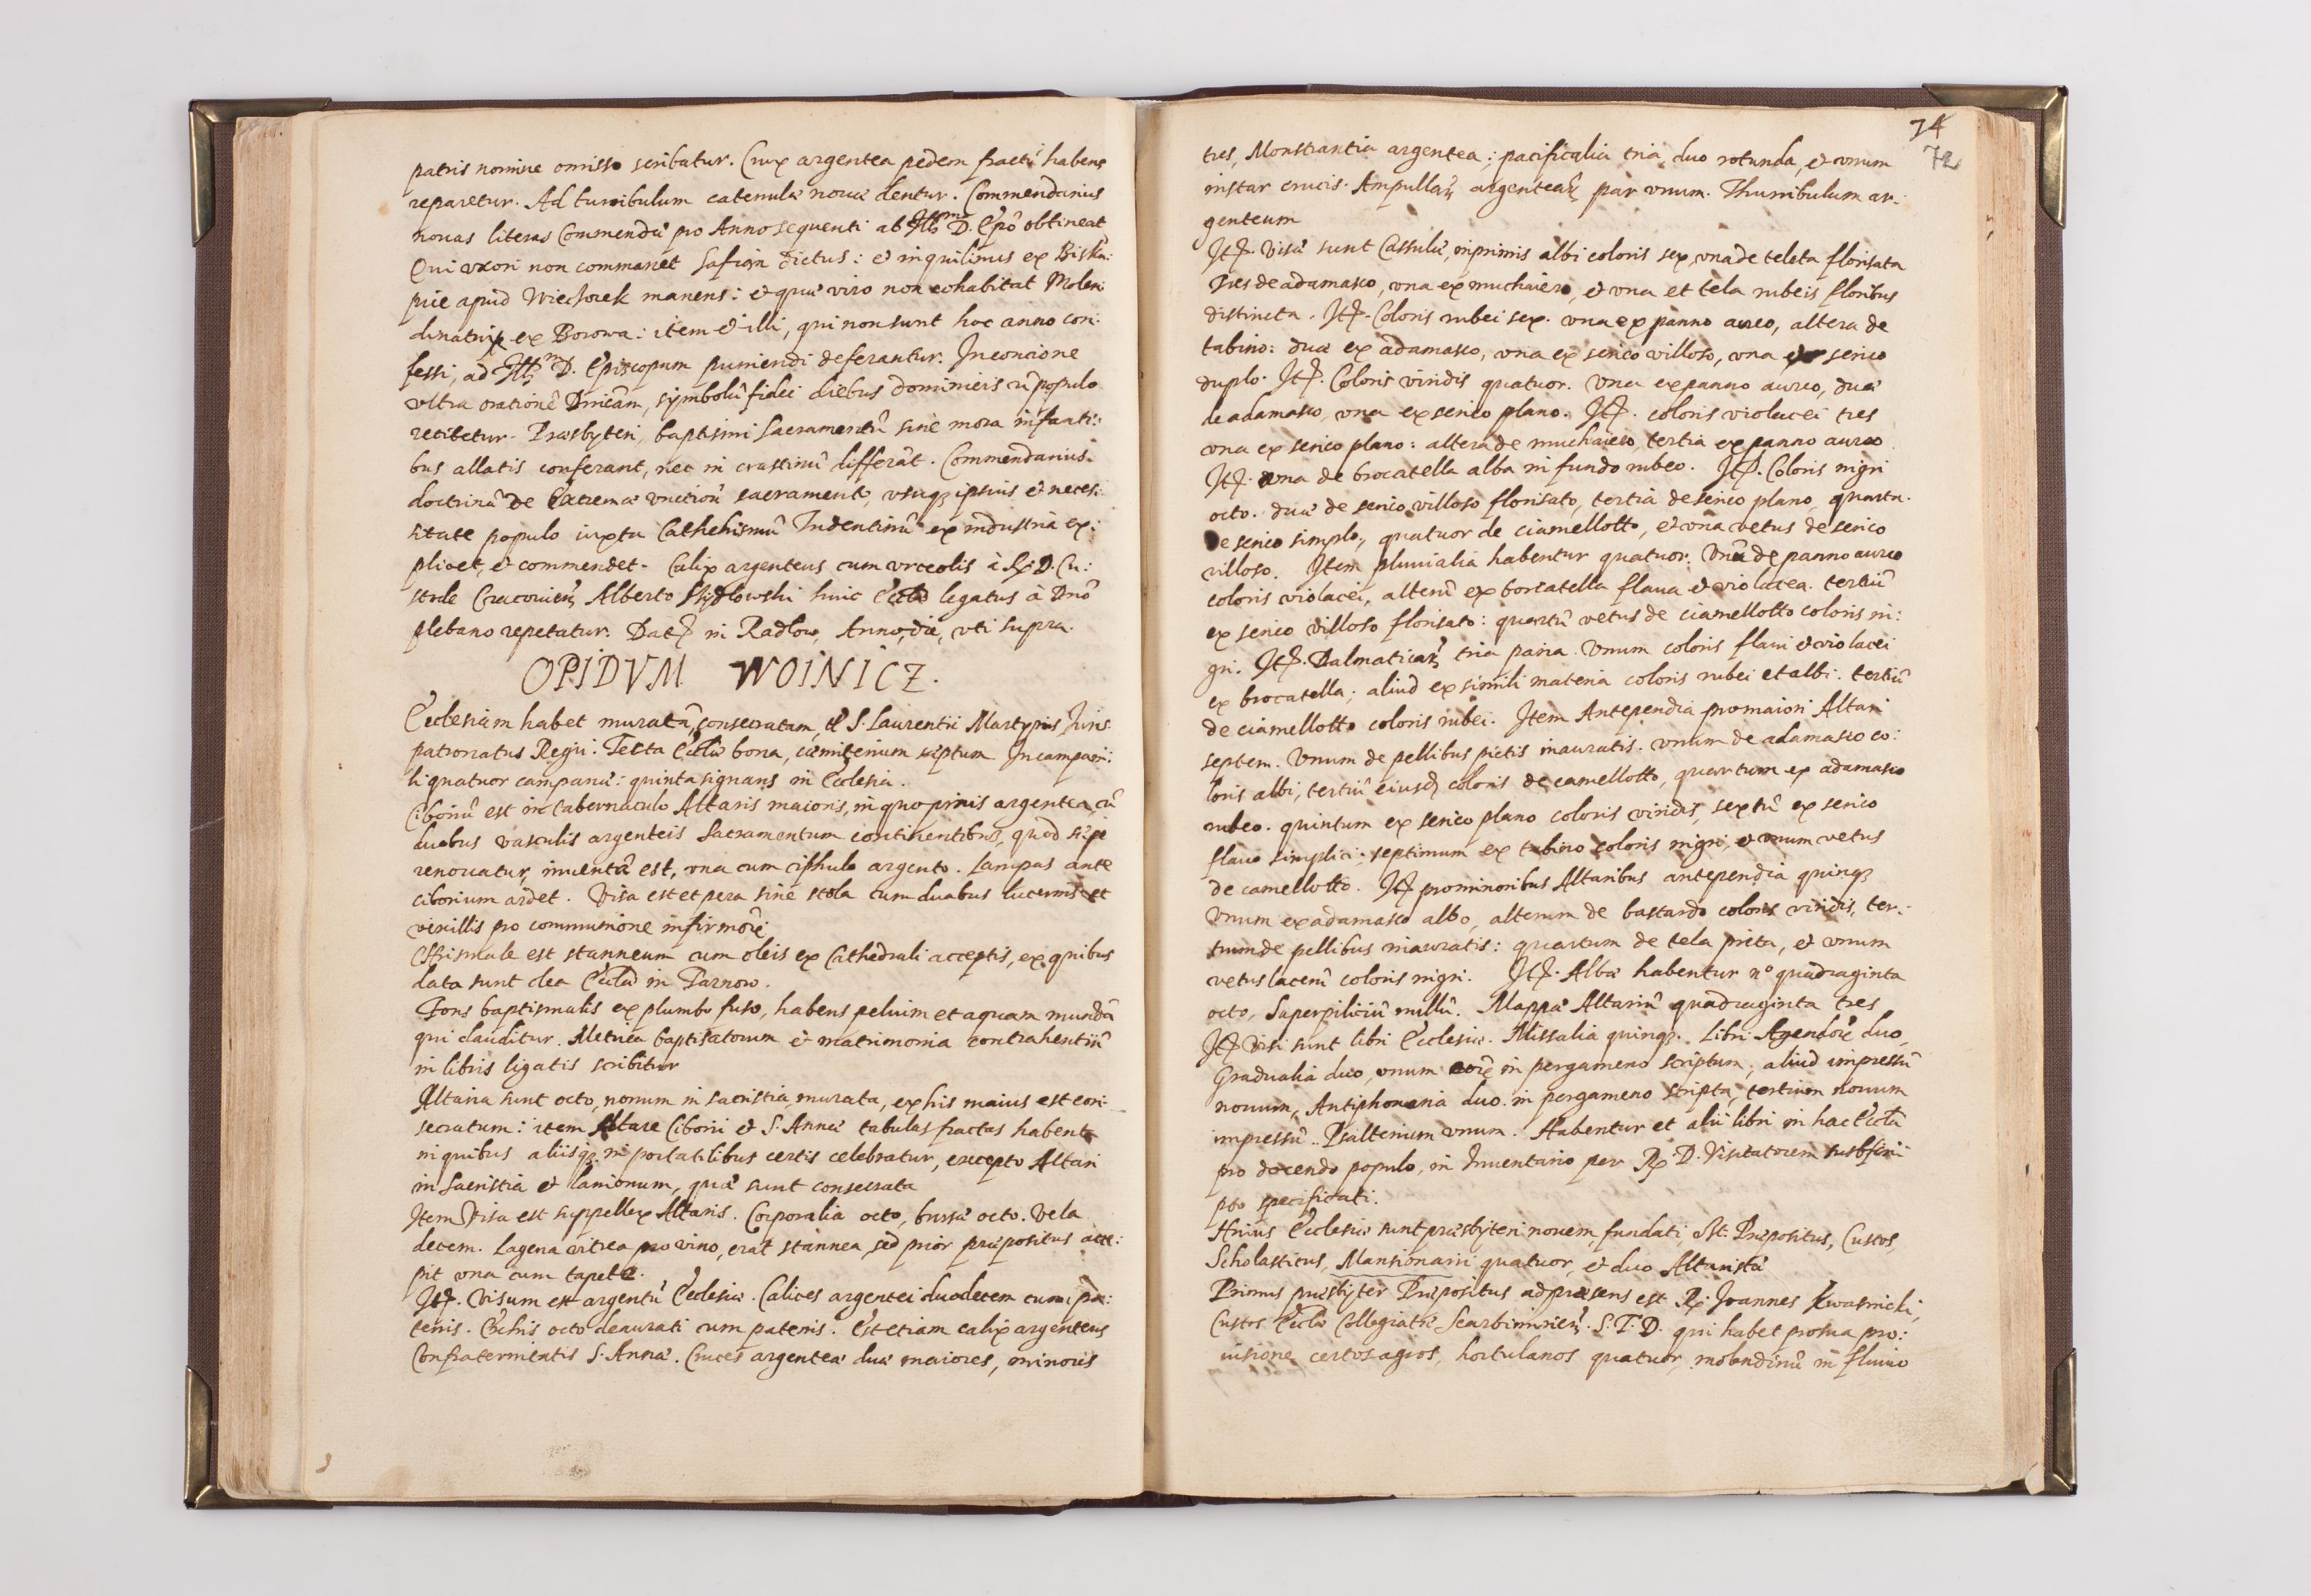 patris nomine omisso scribatur. Crux argentea pedem fractũ habens
reparetur. Ad turribulum catenulæ novæ dentur. Commendarius
novas literas Commendæ pro Anno sequenti ab Illmo D. Epõ obtineat
Qui uxori non commanet Safian dictus: et inquilinus ex Biskũ:
pice apud Wieczorek manens: et quæ viro non cohabitat Molen:
dinatrix ex Borowa: item et illi, qui non sunt hoc anno con:
fessi, ad Illm D. Episcopum puniendi deferantur. In concione
ultra orationẽ Dnicam, symbolũ fidei diebus dominicis cũ populo
recitetur. Præsbyteri, baptismi Sacramentũ sine mora infanti:
bus allatis conferant, nec in crastinũ differãt. Commendarius
doctrinã de Extremæ unctionis sacramento, usuq; ipsius et neces:
sitate populo iuxta Cathehismũ Tridentinũ ex industria ex:
plicet, et commendet. Calix argenteus cum urceolis à R. D. Cu:
stode Cracovien Alberto hinc Ecclæ legatus à Dnõ
plebano repetatur. Dat. in Radlow, Anno, die, uti supra.
OPIDVM WOINICZ.
Ecclesiam habet muratã, consecratam, tt S. Laurentii Martyris, Juris
patronatus Regii. Tecta Ecclæ bona, cæmiterium septum. In campani:
li quatuor campanæ: quinta signans in Ecclesia.
Ciboriũ est in tabernaculo Altaris maioris, in quo pixis argentea, cũ
duobus vasculis argenteis Sacramentum continentibus, quod sæpe
renovatur, inventã est, una cum ciphulo argento. Lampas ante
ciborium ardet. Visa est et pera sine stola cum duabus lucernis et
vexillis pro communione infirmorũ
Chrismale est stanneum cum oleis ex Cathedrali acceptis, ex quibus
data sunt olea Ecclæ in Tarnow.
Fons baptismalis ex plumbo fuso, habens pelvim et aquam mundã
qui clauditur. Metrica baptisatorum et matrimonia contrahentiũ
in libris ligatis scribitur
Altaria sunt octo, nonum in sacristia murata, ex his maius est con:
secratum: item Altare Ciborii et S. Annæ tabulas fractas habent
in quibus aliisq; in portatilibus certis celebratur, excepto Altari
in Sacristia et lanionum, quæ sunt consecrata
Item Visa est suppellex Altaris. Corporalia octo, bursæ octo. Vela
decem. Lagena vitrea pro vino, erat stannea, sed prior præpositus acce:
pit una cum tapete.
It. Visum est argentũ Ecclesiæ. Calices argentei duodecim cum pa:
tenis. Ex his octo deaurati cum patenis. Est etiam calix argenteus
Confraternitatis S. Annæ. Cruces argenteæ duæ maiores, minoris
74
72
tres, Monstrantia argentea; pacificalia tria, duo rotunda, et unum
instar crucis. Ampullarũ argentearũ par unum. Thurribulum ar:
genteum
It. Visæ sunt Casulæ, inprimis albi coloris sex, una de teleta florisata
Tres de adamasco, una ex muchaiero, et una et tela rubeis floribus
distincta. It. Coloris rubei sex. una ex panno aureo, altera de
tabino: duæ ex adamasco, una ex serico villoso, una ex serico
duplo. It. Coloris viridis quatuor. Una ex panno aureo, duæ
de adamasco, una ex serico plano. It. coloris violacei tres
una ex serico plano: altera de muchaiero, tertia ex panno aureo
It. una de brocatella alba in fundo rubeo. It. Coloris nigri
octo. duæ de serico villoso florisato, tertia de serico plano, quarta
de serico simplo, quatuor de ciamellotto, et una vetus de serico
villoso. Item pluvialia habentur quatuor. Unũ de panno aureo
coloris violacei, alterũ ex borcatella flava et violacea. tertiũ
ex serico villoso florisato: quartũ vetus de ciamellotto coloris ni:
gri. It. Dalmaticarũ tria paria. Unum coloris flavi et violacei
ex brocatella; aliud ex simili materia coloris rubei et albi. tertiũ
de ciamellotto coloris rubei. Item Antependia pro maiori Altari
septem. Unum de pellibus pictis inauratis. unum de adamasco co:
loris albi, tertiũ eiusd coloris de camellotto, quartum ex adamasco
rubeo. quintum ex serico plano coloris viridis, sextũ ex serico
flavo simplici; septimum ex tabino coloris nigri, et unum vetus
de camellotto. It pro minoribus Altaribus antependia quinq;
Unum ex adamasco albo, alterum de bastardo coloris viridis, ter:
tium de pellibus inauratis: quartum de tela picta, et unum
vetus lacerũ coloris nigri. It. Albæ habentur nº quadraginta
octo, Superpiliciũ nullũ. Mappæ Altariũ quadraginta tres
It Visi sunt libri Ecclesiæ. Missalia quinq;. Libri Agendorũ duo,
Gradualia duo, unum eorũ in pergameno scriptum, aliud impressũ
novum, Antiphonaria duo in pergameno scripta, tertium novum
impressũ. Psalterium unum. Habentur et alii libri in hac Ecclã
pro docendo populo, in Inventario per R. D. Visitatorem subscri:
pto specificati.
Huius Ecclesiæ sunt præsbyteri novem fundati, Vt. Præpositus, Custos,
Scholasticus, Mansionarii quatuor, et duo Altaristæ
Primus præsbyter Præpositus ad præsens est R. Joannes Kwasnicki,
Custos Ecclæ Collegiatæ Scarbimirien. S. T. D. qui habet pro sua pro:
visione certos agros, hortulanos quatuor, molendinũ in fluvio